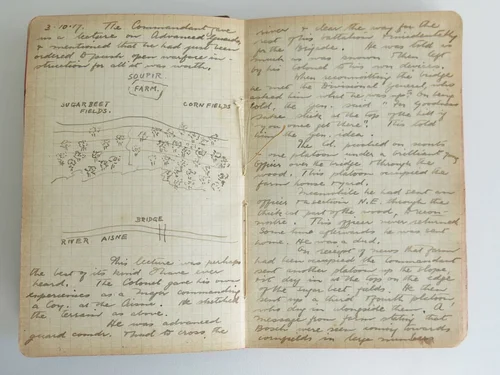 3.10.17. The Commandant gave
us a lecture on Advanced Guards
& mentioned that he had just been
ordered to push open warfare in-
struction for all it was worth.
SOUPIR
FARM.
SUGAR BEET
FIELDS.
CORNFIELDS
BRIDGE
RIVER AISNE
This lecture was perhaps
the best of its kind I have ever
heard. The Colonel gave his own
experiences as a Major commanding
a Coy. at the Aisne. He sketched
the terrain as above.
He was advanced
guard comdr. & had to cross the
river & clear the way for the
rest of his battalion & incidentally
for the Brigade. He was told as
much as was known & then left
by his Colonel to his own devices.
When reconnoitring the bridge
he met the Divisional General, who
asked him what he was up to. On being
told, the Gen. said "For Goodness
sake stick at the top of the hill if
you once get there". This told
him the gen. idea.
The Col. pushed on
one platoon under a brilliant young
officer over the bridge & through the
wood. This platoon occupied the
farm house & yard.
Meanwhile he had sent an
officer & a section N.E. through the
thick part of the wood, to recon-
noitre. This officer never returned.
Some time afterwards he was sent
home. He was a dud.
On receipt of news that farm
had been occupied the Commandant
sent another platoon up the slope
to dig in at the top on the edge
of the sugar beet fields. He then
sent up a third & fourth platoon
who dug in alongside them. A
message from farm stating that
Bosch were seen coming towards
cornfields in large numbers